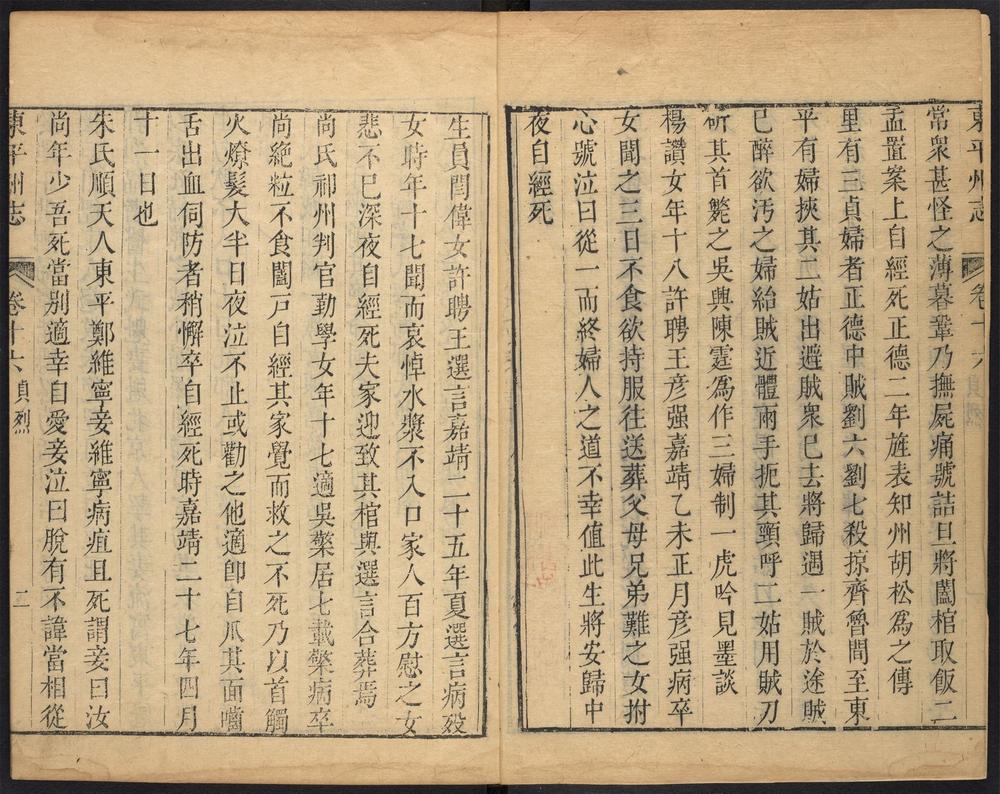 東平州志 卷十六貞烈
常衆甚怪之薄暮鞏乃撫屍痛號詰旦將闔棺取飯二
盂置案上自經死正德二年旌表知州胡松為之傳
里有三貞婦者正德中賊劉六劉七殺掠齊魯間至東
平有婦挾其二姑出避賊衆已去將歸遇一賊於途賊
已醉欲汚之婦紿賊近體兩手扼其頸呼二姑用賊刀
斫其首斃之吳興陳霆為作三婦制一虎吟見墨談
楊讚女年十八許聘王彦强嘉靖乙未正月彦强病卒
女聞之三日不食欲持服往送葬父母兄弟難之女拊
心號泣曰從一而終婦人之道不幸值此生將安歸中
夜自經死
生員閆偉女許聘王選言嘉靖二十五年夏選言病歿
女時年十七聞而哀悼水漿不入口家人百方慰之女
悲不已深夜自經死夫家迎致其棺與選言合葬焉
尚氏祁州判官勤學女年十七適吳檠居七載檠病卒
尚絶粒不食闔戸自經其家覺而救之不死乃以首觸
火燎髮大半日夜泣不止或勸之他適卽自爪其面嚙
舌出血伺防者稍懈卒自經死時嘉靖二十七年四月
十一日也
朱氏順天人東平鄭維寧妾維寧病疽且死謂妾曰汝
尚年少吾死當别適幸自愛妾泣曰脫有不諱當相從
東平州志 卷十六貞烈 二